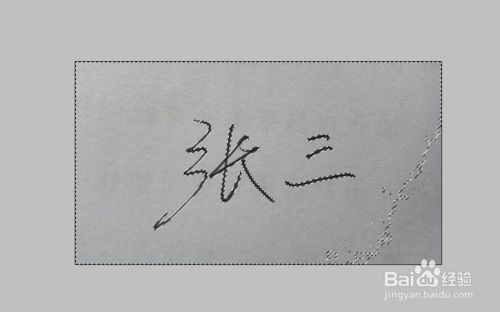 张三
Baidu经验
jingyan.baidu.com